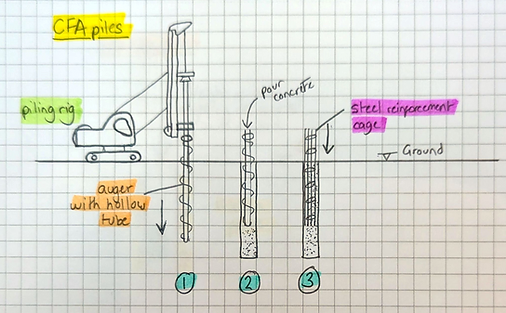 CFA piles
pour
concrete
piling rig
steel reinforcement
cage
Ground
auger
with hollow
tube
1
2
3